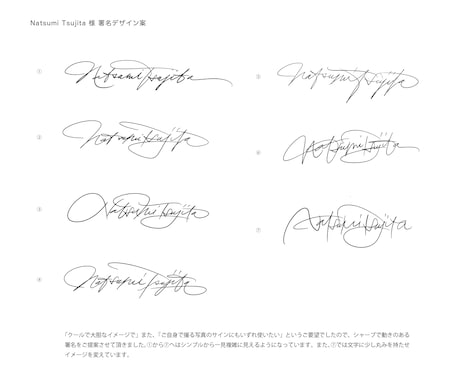 Natsumi Tsujita 様 署名デザイン案
①
Natsumi Tsujita
②
Natsumi Tsujita
③
Natsumi Tsujita
④
Natsumi Tsujita
⑤
Natsumi Tsujita
⑥
Natsumi Tsujita
⑦
Natsumi Tsujita
「クールで大胆なイメージで」また、「ご自身で撮る写真のサインにもいずれ使いたい」というご要望でしたので、シャープで動きのある
署名をご提案させて頂きました。①から⑦へはシンプルから一見複雑に見えるようになっています。また、⑦では文字に少し丸みを持たせ
イメージを変えています。